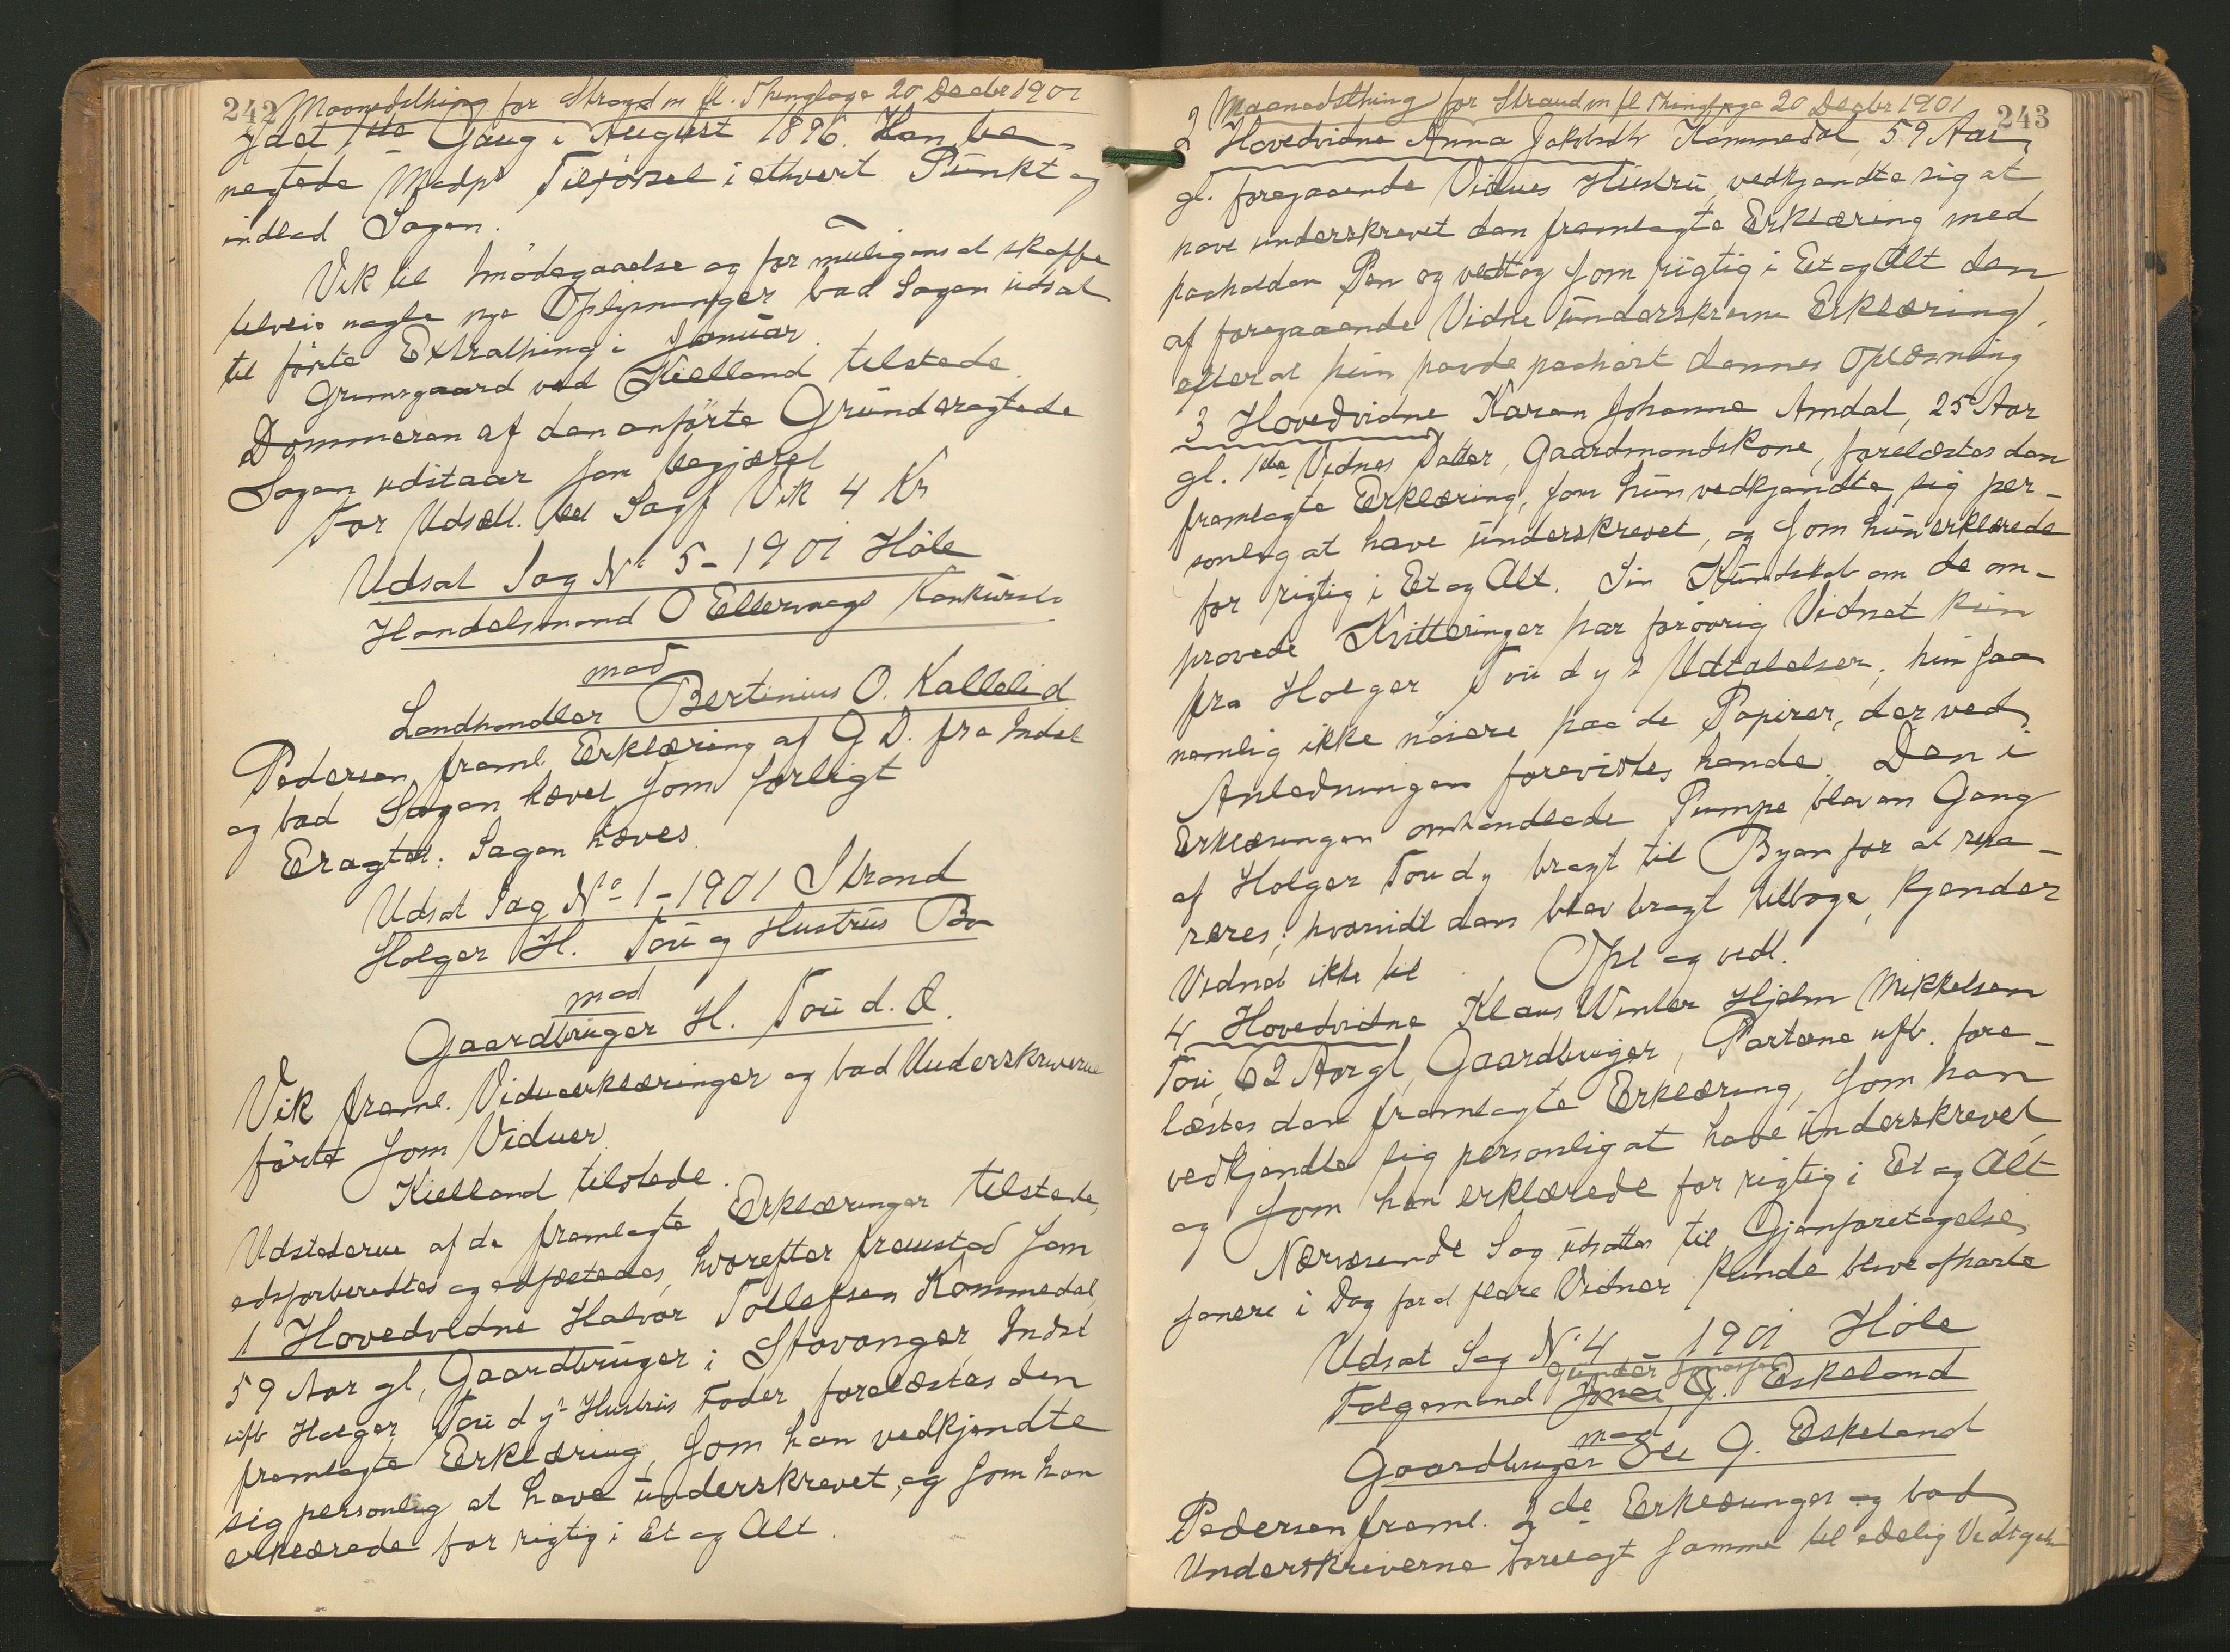 242 Maanedsthing for Strand m fl. Thinglage 20 Decbr 1901
det 1ste Gang i August 1896. Han be-
negtede Modp's Tilførsel i ethvert Punkt og
indlod Sagen.
Vik til Imødegaaelse og for muligens at skaffe
tilveie nogle nye Oplysninger bad Sagen udsat
til første Extrathing i Januar.
Grimsgaard ved Kielland tilstede.
Dommeren af den anførte Grund eragtede
Sagen udstaar som begjæret
For Udsætt. bet Sagf Vik 4 Kr
Udsat Sag No 5 - 1901 Høle
Handelsmand O Ellervaags Konkursbo
mod
Landhandler Bertinius O. Kallelid
Pedersen freml. Erklæring af G D. fra Indst
og bad Sagen hævet som forligt
Eragtet: Sagen hæves.
Udsat Sag No 1 - 1901 Strand
Holger H. Tou og Hustrus Bo
mod
Gaardbruger H. Tou d. Æ.
Vik freml. Vidneerklæringer og bad Underskriverne
ført som Vidner.
Kielland tilstede.
Udstederne af de fremlagte Erklæringer tilstede,
edsforberedtes og edfæstedes, hvorefter fremstod som
1 Hovedvidne Halvor Tollefsen Kommedal,
59 Aar gl, Gaardbruger i Stavanger Indst
ufb Holger Tou d y's Hustrus Fader forelæstes den
fremlagte Erklæring, som han vedkjendte
sig personlig at have underskrevet, og som han
erklærede for rigtig i Et og Alt.
Maanedsthing for Strand m fl Thinglage 20 Decbr 1901 243
2 Hovedvidne Anna Jakobsdtr Kommedal, 59 Aar
gl. foregaaende Vidnes Hustru, vedkjendte sig at
have underskrevet den fremlagte Erklæring med
paaholden Pen og vedtog som rigtig i Et og Alt den
af foregaaende Vidne underskrevne Erklæring,
efterat hun havde paahørt dennes Oplæsning
3 Hovedvidne Karen Johanne Amdal, 25 Aar
gl. 1ste Vidnes Datter, Gaardmandskone, forelæstes den
fremlagte Erklæring, som hun vedkjendte sig per-
sonlig at have underskrevet, og som hun erklærede
for rigtig i Et og Alt. Sin Kundskab om de om-
prøvede Kvitteringer har forøvrig Vidnet kun
fra Holger Tou d y's Udtalelser; hun saa
nemlig ikke nøiere paa de Papirer, der ved
Anledningen forevistes hende. Den i
Erklæringen omhandlede Pumpe blev en Gang
af Holger Tou d y bragt til Byen for at repa-
reres; hvorvidt den blev bragt tilbage, kjender
Vidnet ikke til. Opl og vedt.
4 Hovedvidne Klaus Winter Hjelm Mikkelsen
Tou, 62 Aar gl, Gaardbruger, Parterne ufb. fore-
læstes den fremlagte Erklæring, som han
vedkjendte sig personlig at have underskrevet
og som han erklærede for rigtig i Et og Alt
Nærværende Sag udsattes til Gjenforetagelse
senere i Dag for at flere Vidner kunde blive afhørte
Udsat Sag No 4 1901 Høle
Gunder Jonassen
Følgemand Jonas G. Eskeland
mod
Gaardbruger Ole G. Eskeland
Pedersen freml. 2de Erklæringer og bad
Underskriverne forelagt samme til edelig Vedtagelse